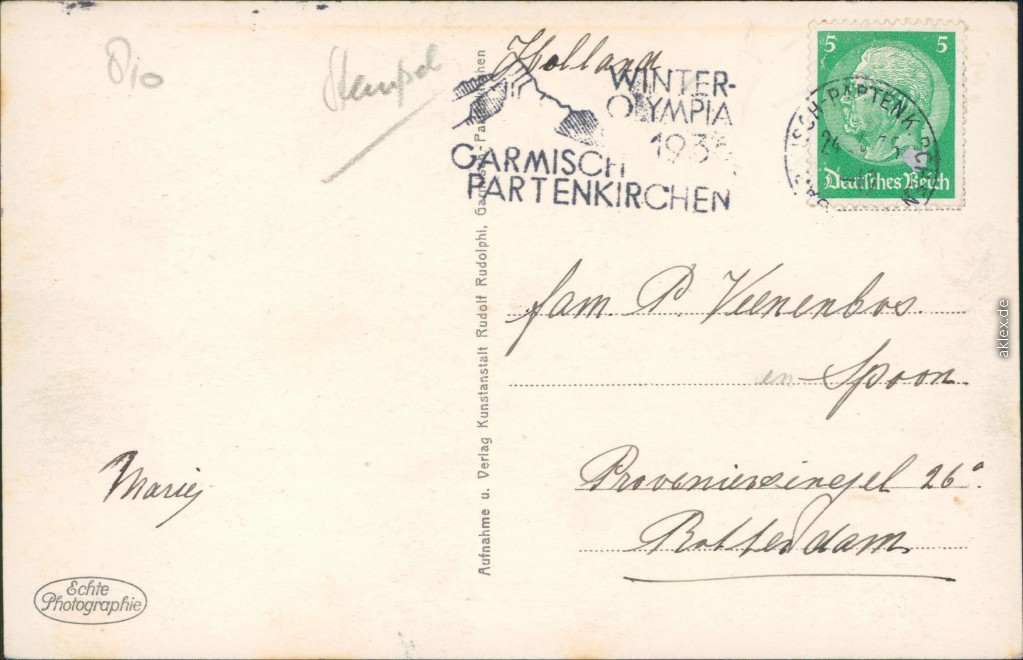 Stempel
Holland
WINTER-
OLYMPIA
1936
GARMISCH
PARTENKIRCHEN
5 5
Deutsches Reich
Aufnahme u. Verlag Kunstanstalt Rudolf Rudolphi, Garmisch-Partenkirchen
fam. P. Veenenbos.
en Spoon.
Provenierssingel 26ª.
Rotterdam
Marie
Echte
Photographie
aklex.de